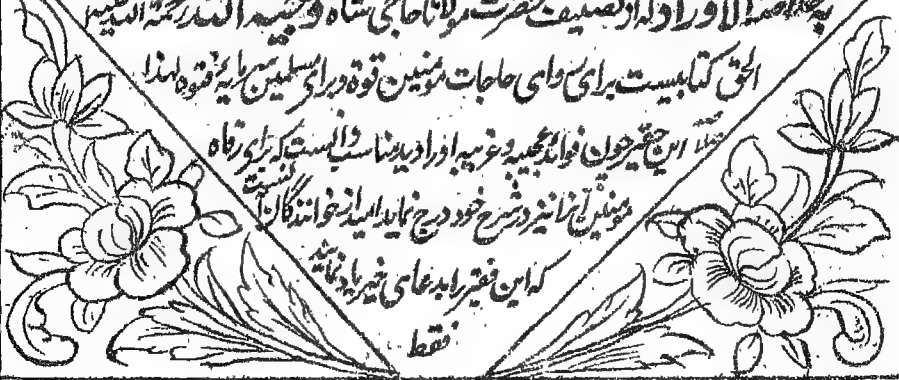 به خلاصة الاوراد که از تصنیف حضرت مولانا حاجی شاه
الحق کتابیست برای روای حاجات مومنین قوة و برای مسلمین سرمایهٔ فتوة لهذا
این حقیر چون فوائد عجیبه و غریبه اوراد دید مناسب دانست که برای رفاه
مومنین آنرا نیز در شرح خود درج نماید امید از خوانندگان آنست
که این فقیر را بدعای خیر یاد نمایند
فقط